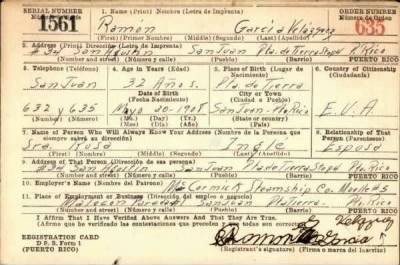 SERIAL NUMBER 1. Name (Print) Nombre (Letra de Imprenta) ORDER NUMBER
Número de Orden
1561 Ramón García Velázquez 635
(First) (Primer Nombre) (Middle) (Segundo Nombre) (Last) (Apellido)
2. Address (Print) Dirección (Letra de Imprenta)
#34 San Agustín San Juan Pta. de Tierra Stop P. Rico
PUERTO RICO
3. Telephone (Teléfono) 4. Age in Years (Edad) 5. Place of Birth (Lugar de Nacimiento) 6. Country of Citizenship (Ciudadanía)
San Juan 33 Años. Pta. de Tierra
Date of Birth (Fecha-Nacimiento) City or Town (Ciudad o Pueblo)
632 y 635 Mayo 30-1908 San Juan-Pto Rico E.U.A
(No.) (Mo.) (Mes) (Day) (Día) (Yr.) (Año) State or country (País)
7. Name of Person Who Will Always Know Your Address (Nombre de la Persona que siempre sabrá su dirección) 8. Relationship of That Person (Parentesco)
Sra. Rosa Inglé Esposa
(First) (Nombre) (Middle) (Segundo) (Last) (Apellido)
9. Address of That Person (Dirección de esa persona)
#34 San Agustín San Juan Pta. de Tierra Stop Pto. Rico
PUERTO RICO
10. Employer's Name (Nombre del Patrono)
Mc Cormick Steamship Co. Muelle #8
11. Place of Employment or Business (Dirección del empleo o negocio)
San Juan Pta Tierra Pto. Rico
PUERTO RICO
I Affirm That I Have Verified Above Answers And That They Are True.
(Afirmo que he comprobado las anteriores contestaciones y que son ciertas.)
REGISTRATION CARD
D S S. Form 1
(PUERTO RICO)
Registrant's signature (firma o marca del registrado)